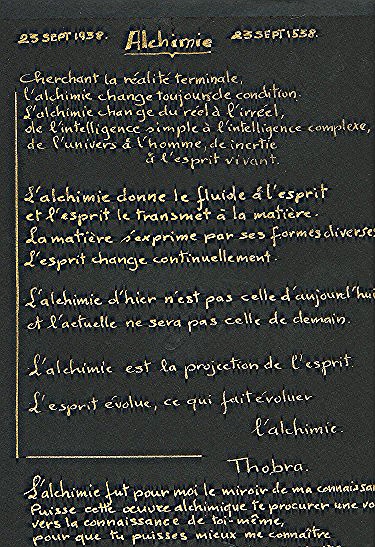 23 SEPT 1938. Alchimie 23 SEPT 1538.
Cherchant la réalité terminale,
l'alchimie change toujours de condition.
L'alchimie change du réel à l'irréel,
de l'intelligence simple à l'intelligence complexe,
de l'univers à l'homme, de inertie
à l'esprit vivant.
L'alchimie donne le fluide à l'esprit
et l'esprit le transmet à la matière.
La matière s'exprime par ses formes diverses
L'esprit change continuellement.
L'alchimie d'hier n'est pas celle d'aujourd'hui
et l'actuelle ne sera pas celle de demain.
L'alchimie est la projection de l'esprit.
L'esprit évolue, ce qui fait évoluer
l'alchimie.
Thobra.
L'alchimie fut pour moi le miroir de ma connaissan
Puisse cette oeuvre alchimique te procurer une vo
vers la connaissance de toi-même,
pour que tu puisses mieux me connaître